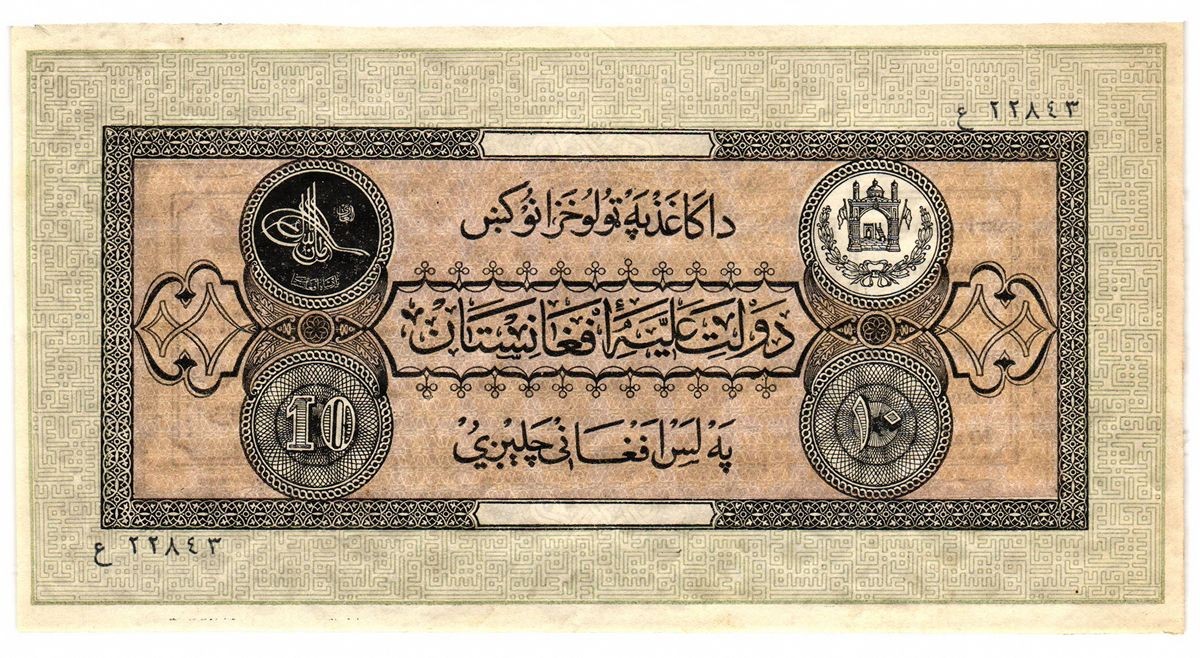 ع ٢٢٨٤٣
داکاغذ په ټولو خزانو کښ
دولت علیهٔ افغانستان
10
١٠
په لس افغانی چلیږی
ع ٢٢٨٤٣